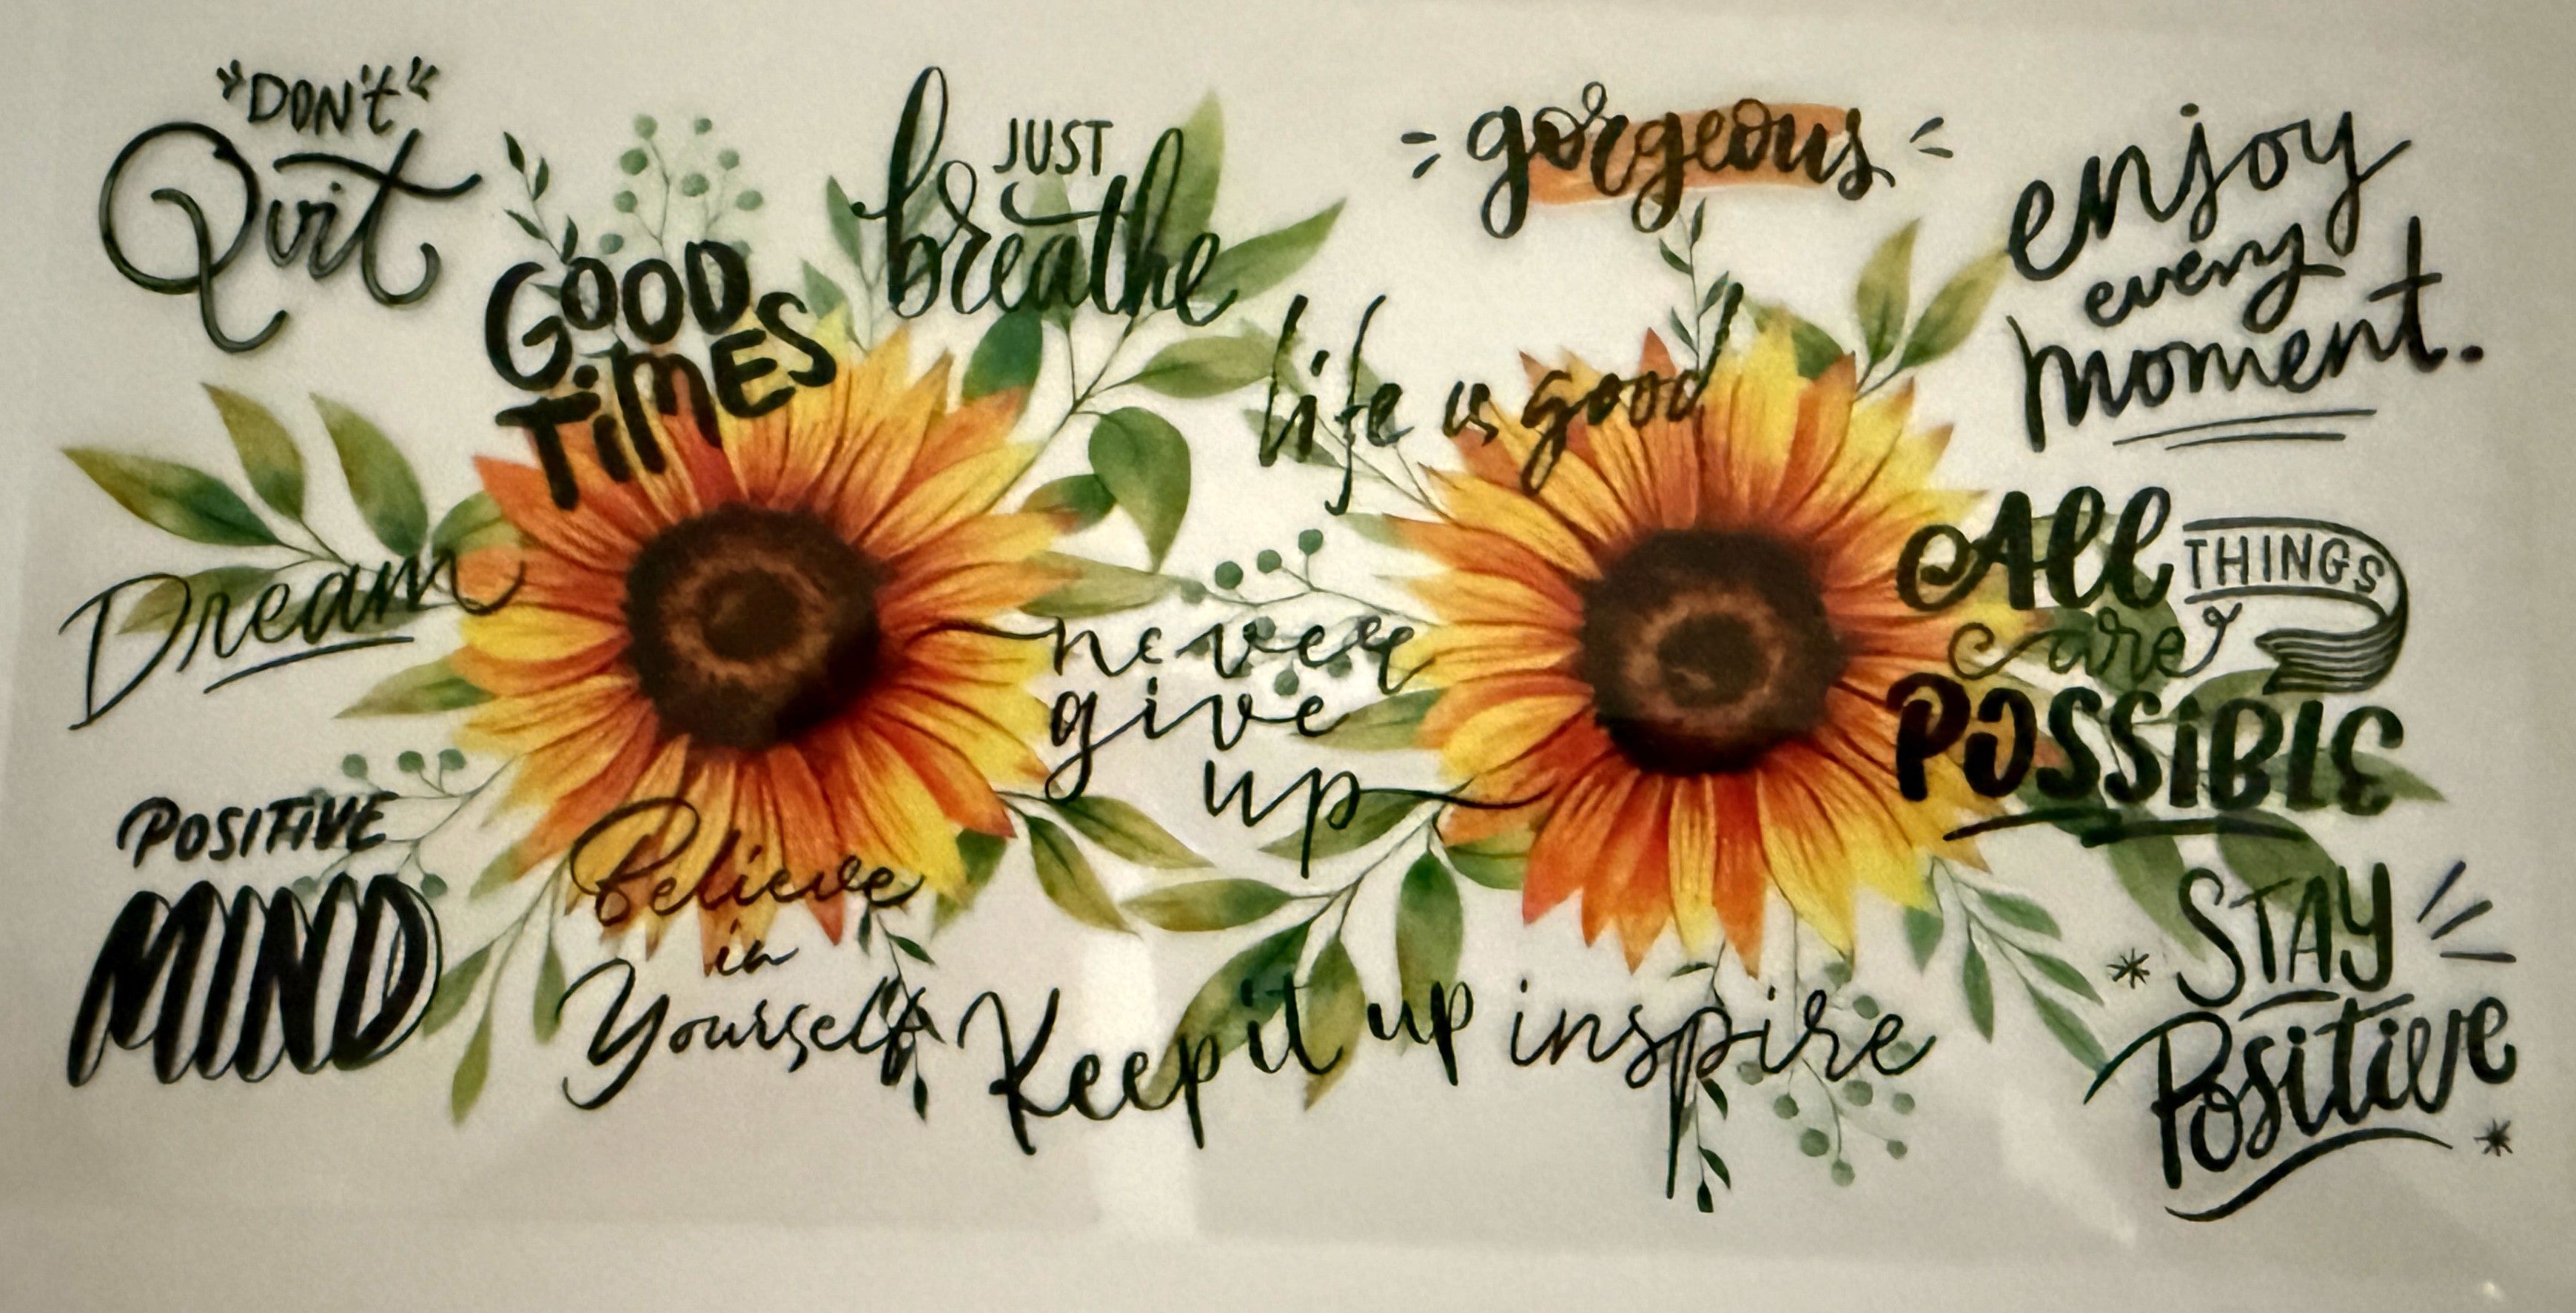 "DON't"
Quit
GOOD
TiMES
JUST
breathe
gorgeous
enjoy
every
moment.
life is good
Dream
never
give
up
All THINGS
are
POSSiBLE
POSITIVE
MIND
Believe
in
Yourself
Keep it up
inspire
STAY
Positive